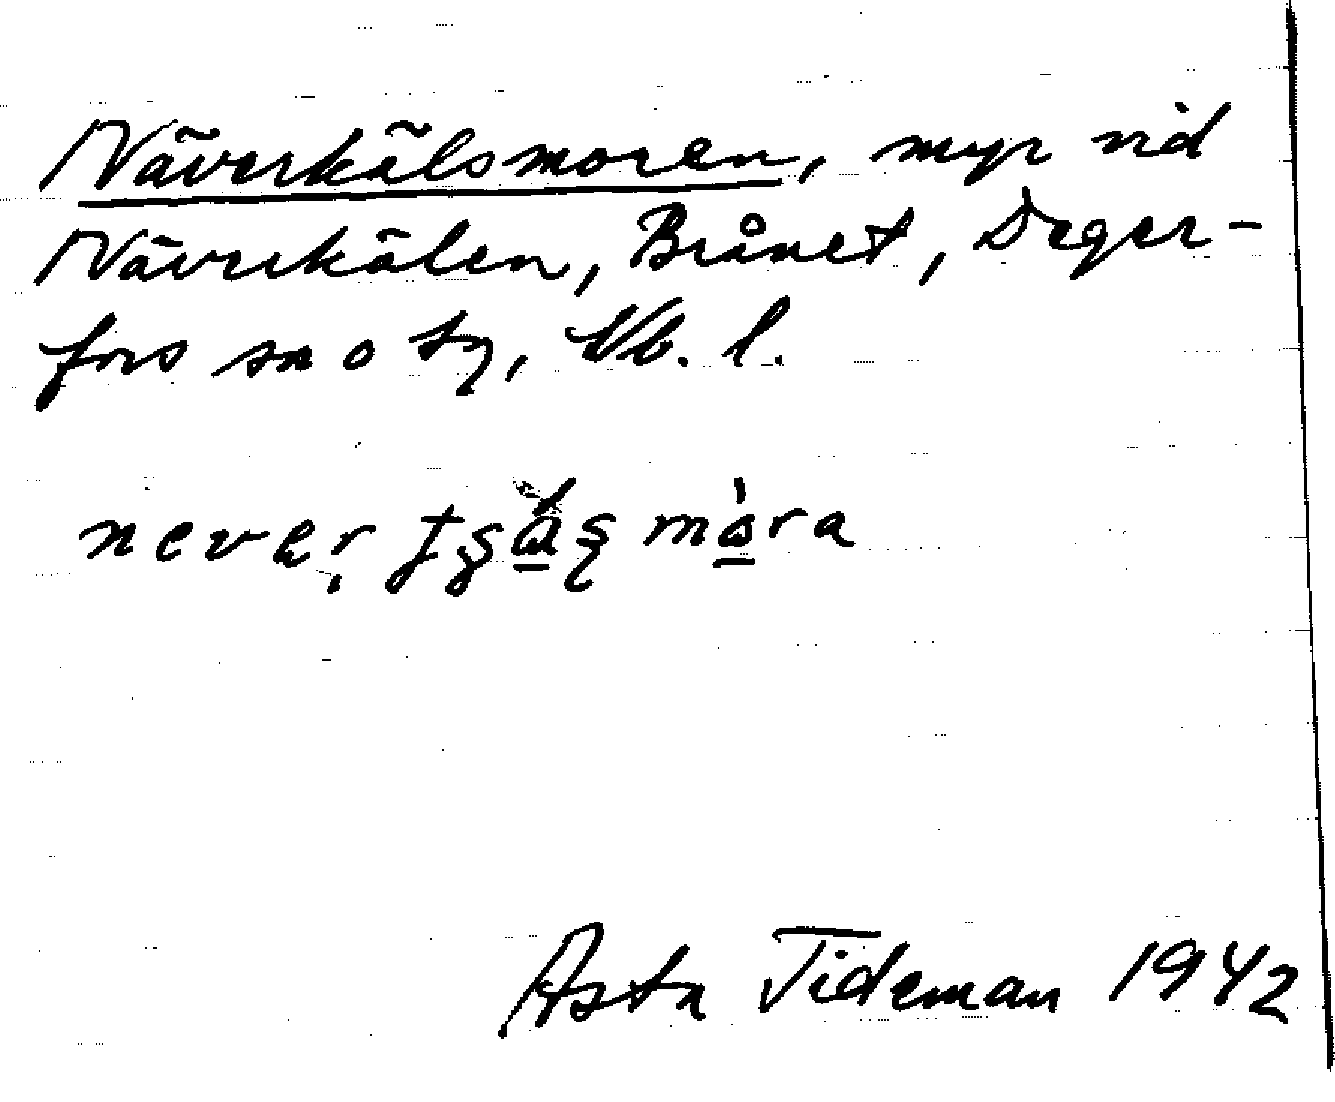 Näverkälsmoren, myr vid
Näverkälen, Brånet, Deger-
fors sn o tg, Vb. l.
never mòra
Asta Tideman 1942